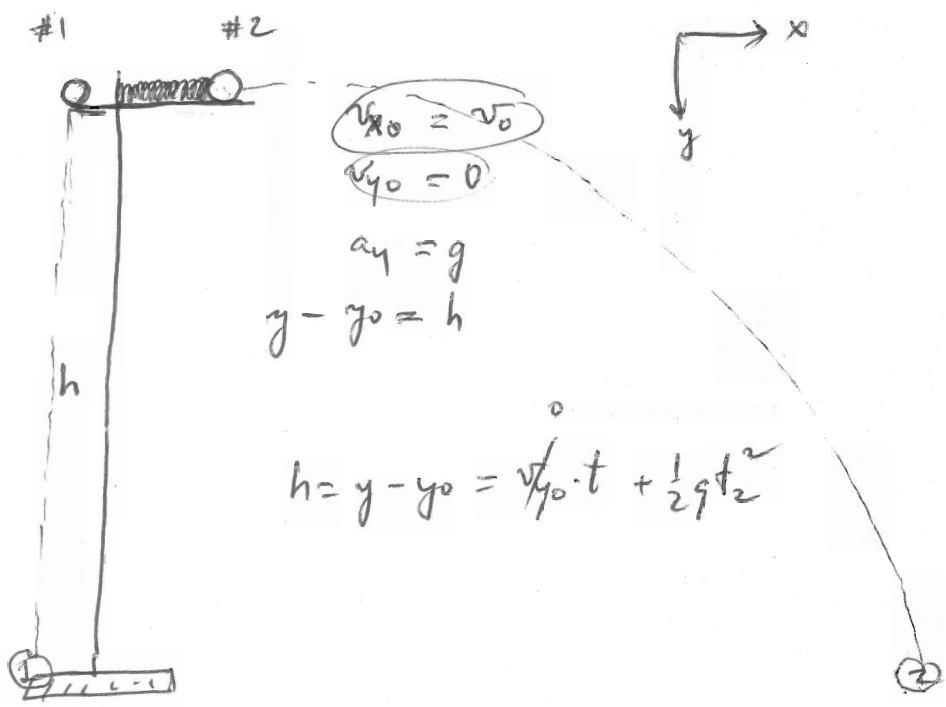 #1 #2
x
v_{x0} = v_0
y
v_{y0} = 0
a_y = g
y - y_0 = h
h
0
h = y - y_0 = v_{y0} · t + \frac{1}{2} g t_2^2
1
2